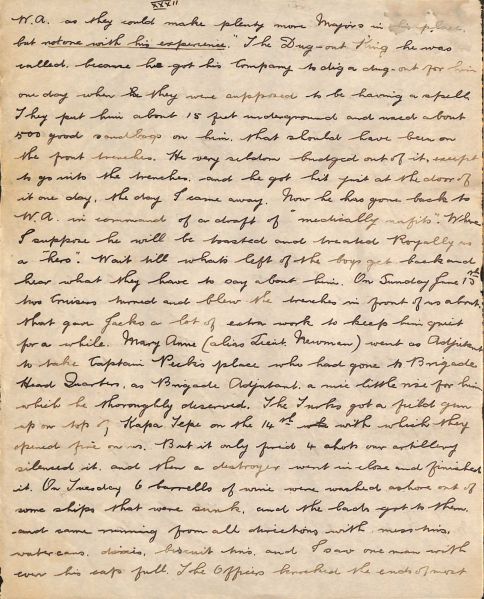 XXXII
W.A. as they could make plenty more Majors in his place
but not one with his experience". The Dug-out King he was
called, because he got his Company to dig a dug-out for him
one day when they were supposed to be having a spell
They put him about 15 feet underground and used about
500 good sandbags on him, that should have been on
the front trenches. He very seldom budged out of it, except
to go into the trenches, and he got hit just at the door of
it one day, the day I came away. Now he has gone back to
W.A. in command of a draft of "medically unfits". Where
I suppose he will be toasted and treated Royally as
a "hero". Wait till whats left of the boys get back and
hear what they have to say about him. On Sunday June 13th
two Cruisers turned and blew the trenches in front of us about,
that gave Jacko a lot of extra work to keep him quiet
for a while. Mary Anne (alias Lieut. Newman) went as Adjutant
to take Captain Peebis place who had gone to Brigade
Head Quarters, as Brigade Adjutant, a nice little rise for him
which he thoroughly deserved. The Turks got a field gun
up on top of Kapa Tepe on the 14th with which they
opened fire on us. But it only fired 4 shots our artillery
silenced it, and then a destroyer went in close and finished
it. On Tuesday 6 barrells of wine were washed ashore out of
some ships that were sunk, and the lads got to them,
and came running from all directions with mess tins,
water cans, dixies, biscuit tins, and I saw one man with
even his cap full. The Officers knocked the ends of most